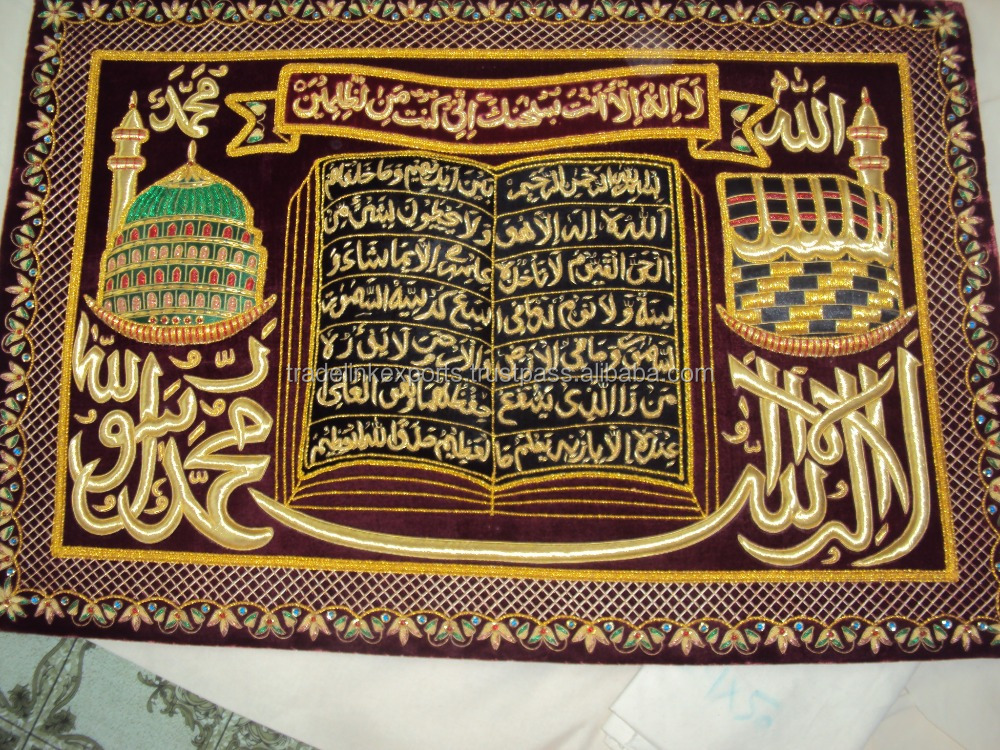 محمد
لا اله الا انت سبحنك اني كنت من الظلمين
الله
بسم الله الرحمن الرحيم
الله لا اله الا هو
الحي القيوم لا تاخذه
سنة ولا نوم له ما في ا
لسموت وما في الارض
من ذا الذي يشفع
عنده الا باذنه يعلم ما
بين ايديهم وما خلفهم
ولا يحيطون بشئ من
علمه الا بما شاء و
سع كرسيه السموت
والارض ولا يؤده
حفظهما وهو العلي
العظيم صدق الله العظيم
لا اله الا الله
محمد رسول الله
tradelinkexports.trustpass.alibaba.com